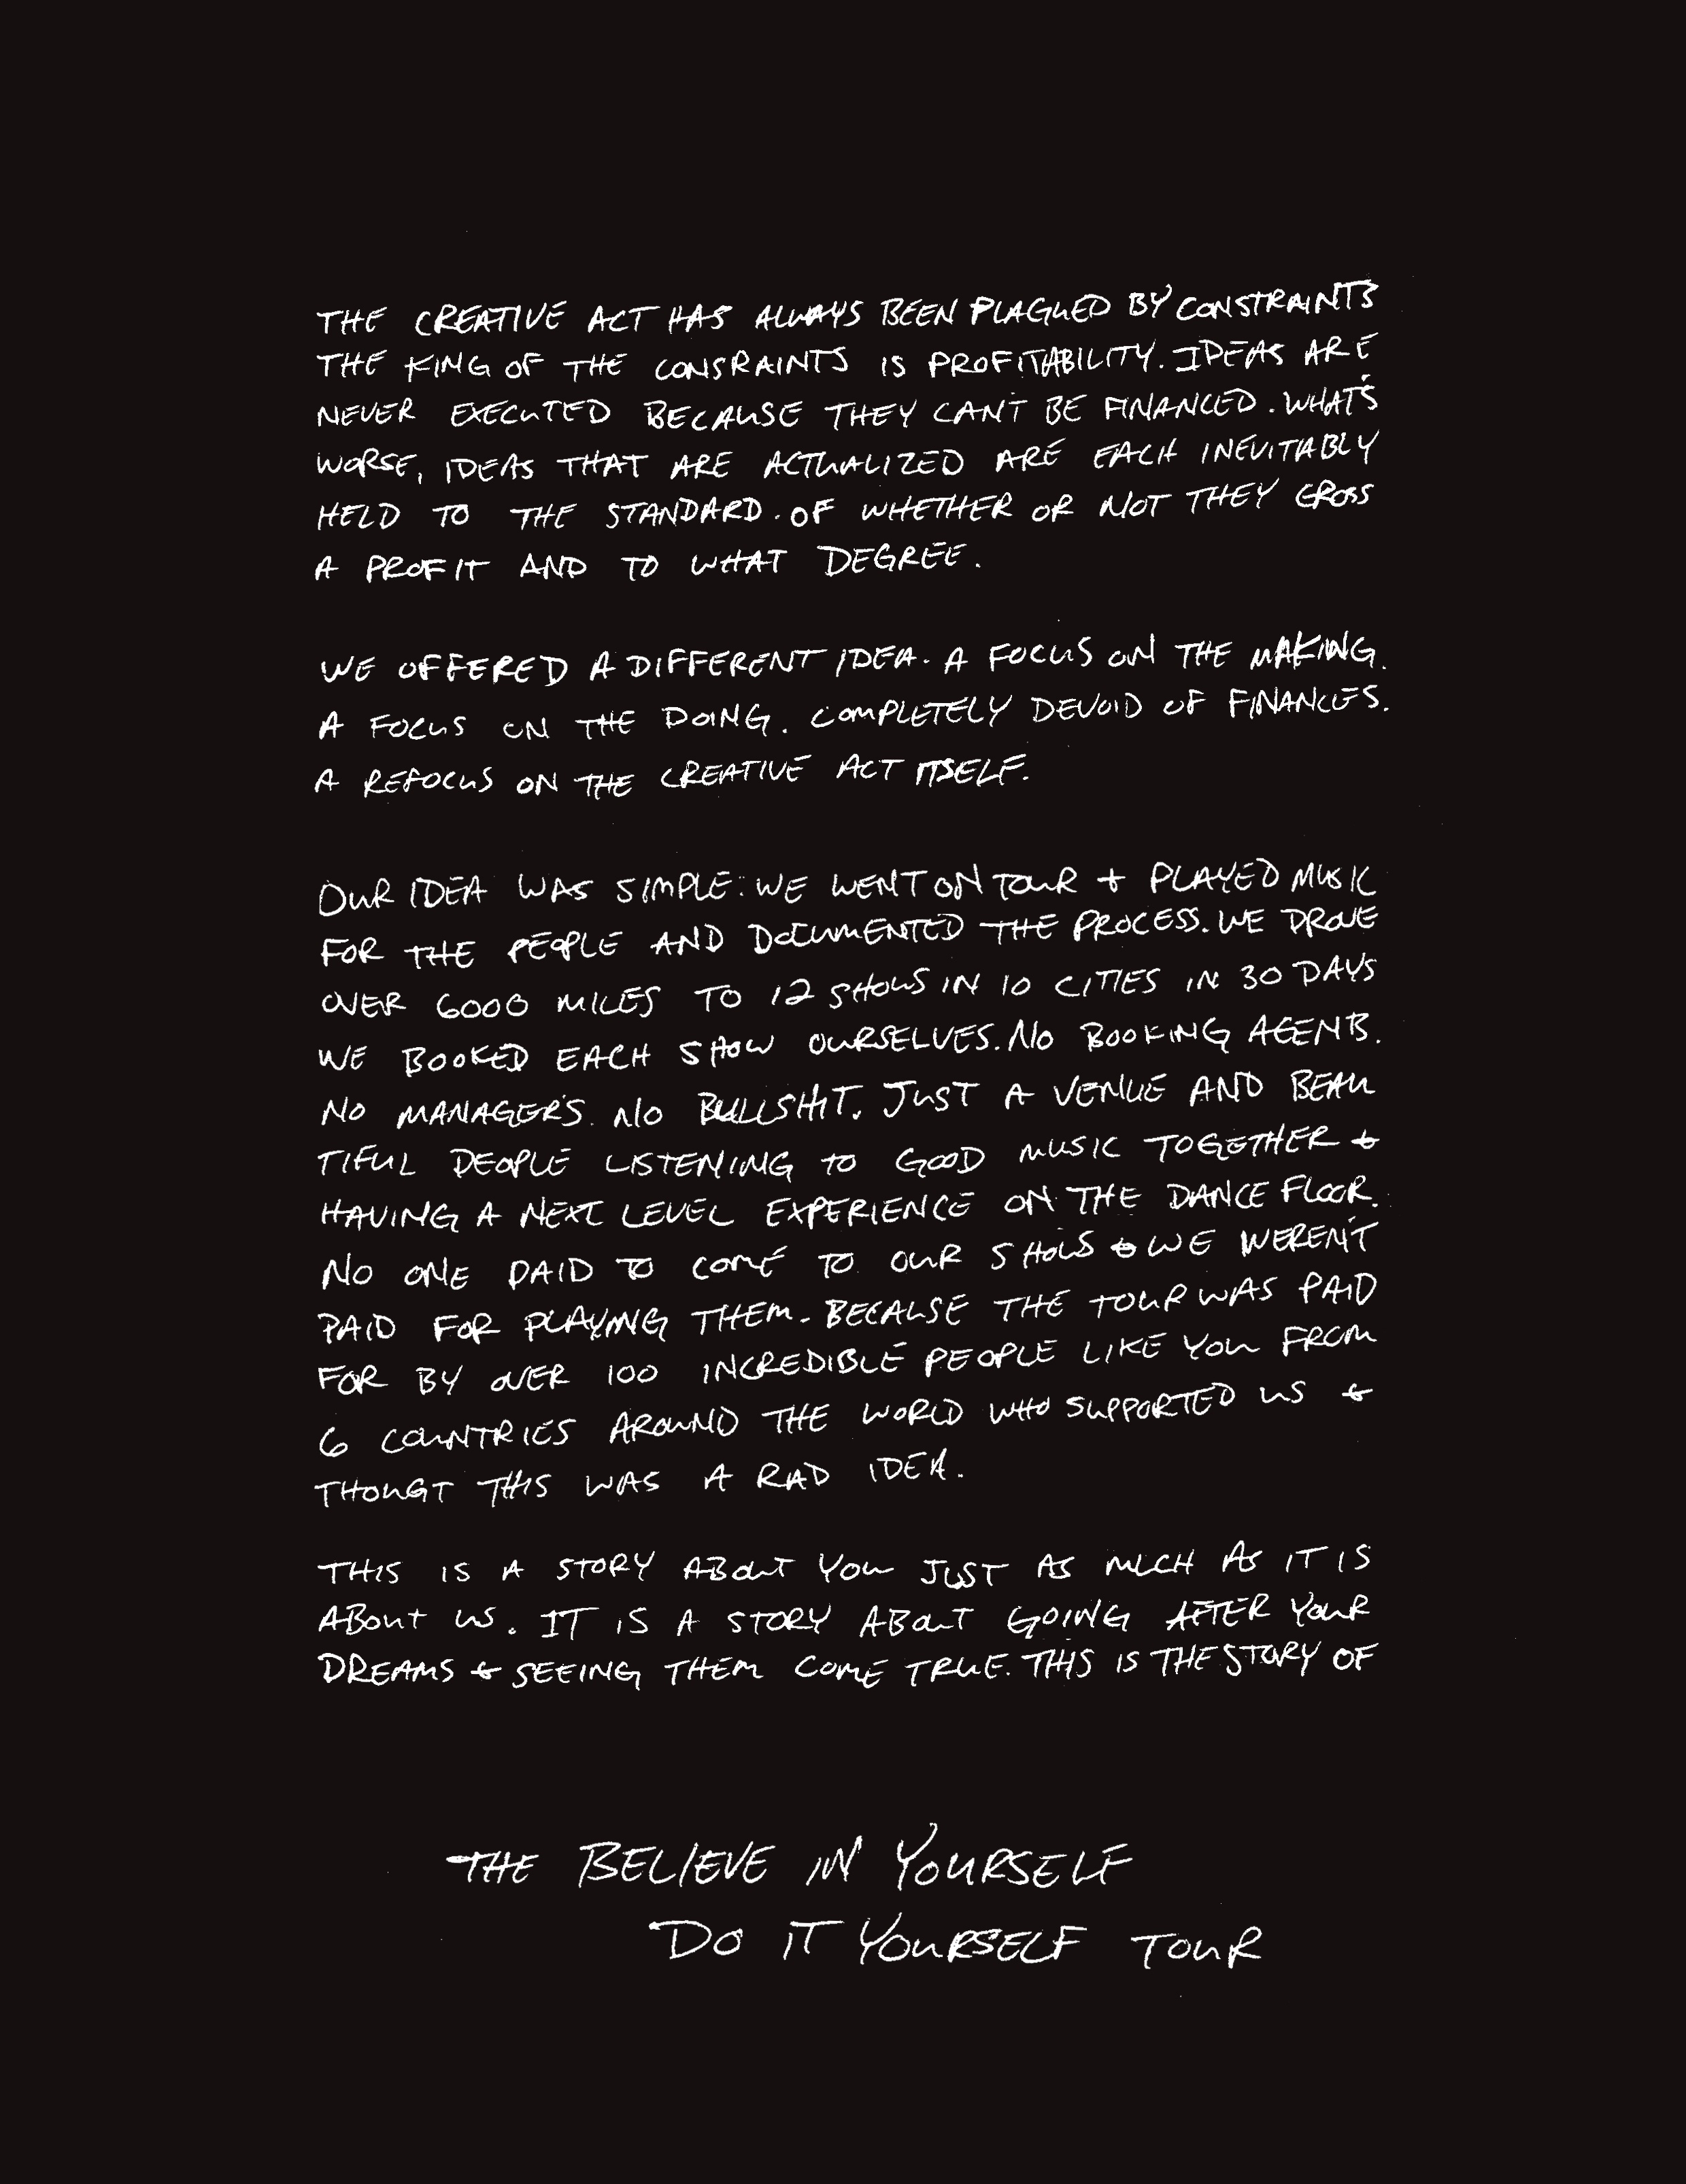 THE CREATIVE ACT HAS ALWAYS BEEN PLAGUED BY CONSTRAINTS
THE KING OF THE CONSRAINTS IS PROFITABILITY. IDEAS ARE
NEVER EXECUTED BECAUSE THEY CAN'T BE FINANCED. WHAT'S
WORSE, IDEAS THAT ARE ACTUALIZED ARE EACH INEVITABLY
HELD TO THE STANDARD. OF WHETHER OR NOT THEY GROSS
A PROFIT AND TO WHAT DEGREE.
WE OFFERED A DIFFERENT IDEA. A FOCUS ON THE MAKING.
A FOCUS ON THE DOING. COMPLETELY DEVOID OF FINANCES.
A REFOCUS ON THE CREATIVE ACT ITSELF.
OUR IDEA WAS SIMPLE: WE WENT ON TOUR + PLAYED MUSIC
FOR THE PEOPLE AND DOCUMENTED THE PROCESS. WE DROVE
OVER 6000 MILES TO 12 SHOWS IN 10 CITIES IN 30 DAYS
WE BOOKED EACH SHOW OURSELVES. NO BOOKING AGENTS.
NO MANAGERS. NO BULLSHIT. JUST A VENUE AND BEAU
TIFUL PEOPLE LISTENING TO GOOD MUSIC TOGETHER &
HAVING A NEXT LEVEL EXPERIENCE ON THE DANCE FLOOR.
NO ONE PAID TO COME TO OUR SHOWS & WE WEREN'T
PAID FOR PLAYING THEM. BECAUSE THE TOUR WAS PAID
FOR BY OVER 100 INCREDIBLE PEOPLE LIKE YOU FROM
6 COUNTRIES AROUND THE WORLD WHO SUPPORTED US &
THOUGT THIS WAS A RAD IDEA.
THIS IS A STORY ABOUT YOU JUST AS MUCH AS IT IS
ABOUT US. IT IS A STORY ABOUT GOING AFTER YOUR
DREAMS & SEEING THEM COME TRUE. THIS IS THE STORY OF
THE BELIEVE IN YOURSELF
DO IT YOURSELF TOUR